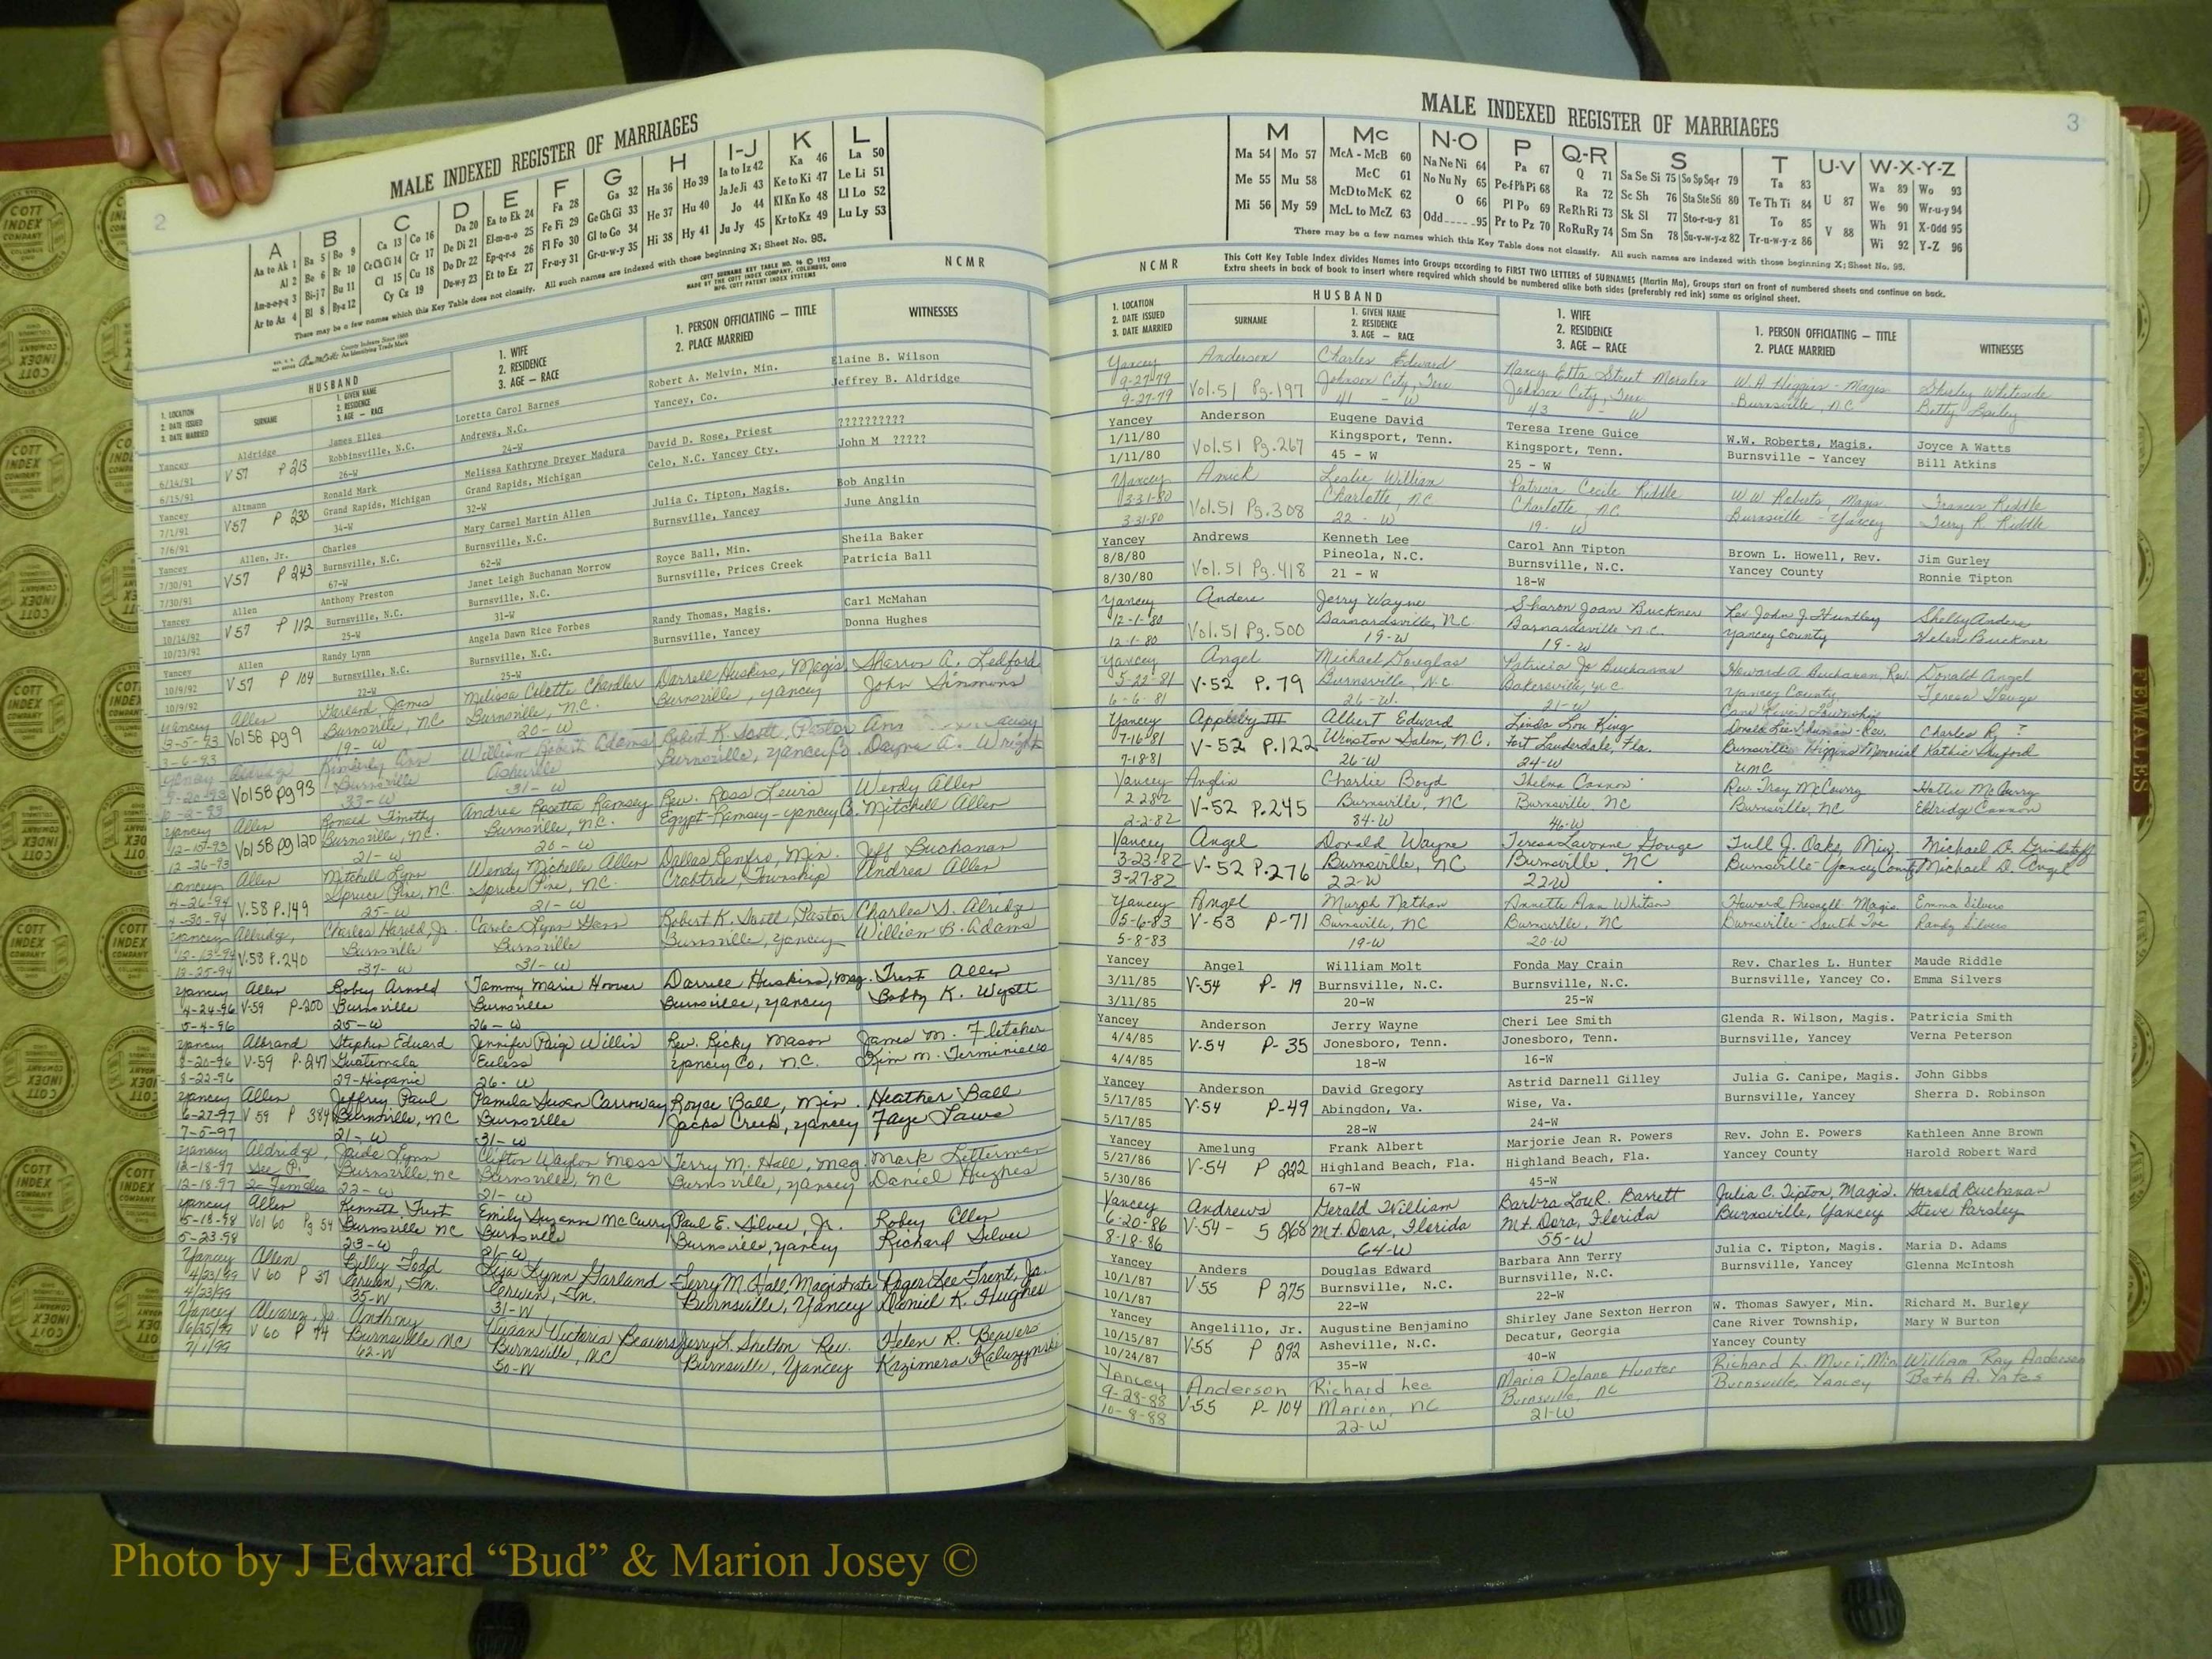 2
MALE INDEXED REGISTER OF MARRIAGES
A B C D E F G H I-J K L
Aa to Ak 1 Ba 5 Bo 9 Ca 13 Co 16 Da 20 Ea to Ek 24 Fa 28 Ga 32 Ha 36 Ho 39 Ia to Iz 42 Ka 46 La 50
Al 2 Be 6 Br 10 Ce Ch Ci 14 Cr 17 De Di 21 El-m-n-o 25 Fe Fi 29 Ge Gh Gi 33 He 37 Hu 40 Ja Je Ji 43 Ke to Ki 47 Le Li 51
An-o-p-q 3 Bi-j 7 Bu 11 Cl 15 Cu 18 Do Dr 22 Ep-q-r-s 26 Fl Fo 30 Gl to Go 34 Hi 38 Hy 41 Jo 44 Kl Kn Ko 48 Ll Lo 52
Ar to Az 4 Bl 8 By-z 12 Cy Cz 19 Du-w-y 23 Et to Ez 27 Fr-u-y 31 Gr-u-w-y 35 Ju Jy 45 Kr to Kz 49 Lu Ly 53
There may be a few names which this Key Table does not classify. All such names are indexed with those beginning X; Sheet No. 95.
COTT SURNAME KEY TABLE NO. 96 © 1952
MADE BY THE COTT INDEX COMPANY, COLUMBUS, OHIO
MFG. COTT PATENT INDEX SYSTEMS
NCMR
County Indexes Since 1888
An Identifying Trade Mark
HUSBAND
1. LOCATION
2. DATE ISSUED
3. DATE MARRIED
SURNAME
1. GIVEN NAME
2. RESIDENCE
3. AGE — RACE
1. WIFE
2. RESIDENCE
3. AGE — RACE
1. PERSON OFFICIATING — TITLE
2. PLACE MARRIED
WITNESSES
Yancey Aldridge James Elles Loretta Carol Barnes Robert A. Melvin, Min. Elaine B. Wilson
6/14/91 V57 P 213 Robbinsville, N.C. Andrews, N.C. Yancey, Co. Jeffrey B. Aldridge
6/15/91 26-W 24-W
Yancey Altmann Ronald Mark Melissa Kathryne Dreyer Madura David D. Rose, Priest ??????????
7/1/91 V57 P 230 Grand Rapids, Michigan Grand Rapids, Michigan Celo, N.C. Yancey Cty. John M ?????
7/6/91 34-W 32-W
Yancey Allen, Jr. Charles Mary Carmel Martin Allen Julia C. Tipton, Magis. Bob Anglin
7/30/91 V57 P 243 Burnsville, N.C. Burnsville, N.C. Burnsville, Yancey June Anglin
7/30/91 67-W 62-W
Yancey Allen Anthony Preston Janet Leigh Buchanan Morrow Royce Ball, Min. Sheila Baker
10/14/92 V57 P 112 Burnsville, N.C. Burnsville, N.C. Burnsville, Prices Creek Patricia Ball
10/23/92 25-W 31-W
Yancey Allen Randy Lynn Angela Dawn Rice Forbes Randy Thomas, Magis. Carl McMahan
10/9/92 V57 P 104 Burnsville, N.C. Burnsville, N.C. Burnsville, Yancey Donna Hughes
10/9/92 22-W 25-W
Yancey Allen Garland James Melissa Colette Chandler Darrell Huskins, Magis Sharron A. Ledford
3-5-93 Vol 58 pg 9 Burnsville, NC Burnsville, N.C. Burnsville, Yancey John Simmons
3-6-93 19-W 20-W
Yancey Aldridge Kimberly Ann William Robert Adams Robert K. Scott, Pastor Ann
9-20-93 Vol 58 pg 93 Burnsville Asheville Burnsville, Yancey Co. Dayna A. Wright
10-2-93 33-W 31-W
Yancey Allen Ronald Timothy Andrea Rosetta Ramsey Rev. Ross Lewis Wendy Allen
12-10-93 Vol 58 pg 120 Burnsville, N.C. Burnsville, N.C. Egypt-Ramsey-Yancey Co. Mitchell Allen
12-26-93 21-W 20-W
Yancey Allen Mitchell Lynn Wendy Michelle Allen Dallas Renfro, Min. Jeff Buchanan
4-26-94 V.58 P.149 Spruce Pine, NC. Spruce Pine, NC. Crabtree, Township Andrea Allen
4-30-94 25-W 21-W
Yancey Aldridge, Charles Harold, Jr. Carole Lynn Robert K. Scott, Pastor Charles S. Alridge
12-13-94 V.58 P.240 Burnsville Burnsville Burnsville, Yancey William B. Adams
12-25-94 37-W 31-W
Yancey Allen Robey Arnold Tammy Marie Hoover Darrell Huskins, Mag. Trent Allen
4-24-96 V-59 P-200 Burnsville Burnsville Burnsville, Yancey Bobby K. Wyatt
5-4-96 25-W 26-W
Yancey Albrand Stephen Edward Jennifer Paige Willis Rev. Ricky Mason James M. Fletcher
8-20-96 V-59 P-247 Guatemala Euless Yancey Co, N.C. Kim M. Terminiello
8-22-96 29-Hispanic 26-W
Yancey Allen Jeffrey Paul Pamela Susan Carroway Royce Ball, Min. Heather Ball
6-27-97 V 59 P 384 Burnsville, NC Burnsville Jacks Creek, Yancey Faye Laws
7-5-97 21-W 31-W
Yancey Aldridge, Jaide Lynn Clifton Waylon Moss Terry M. Hall, Mag. Mark Letterman
12-18-97 see P. Burnsville, NC Burnsville, NC Burnsville, Yancey Daniel Hughes
12-18-97 2a Females 22-W 21-W
Yancey Allen Kenneth Trent Emily Suzanne McCurry Paul E. Silver, Jr. Robey Allen
5-18-98 Vol 60 Pg 54 Burnsville NC Burnsville Burnsville, Yancey Richard Silver
5-23-98 23-W 21-W
Yancey Allen Billy Todd Lisa Lynn Garland Terry M. Hall, Magistrate Roger Lee Trent, Jr.
4/23/99 V 60 P 37 Erwin, Tn. Erwin, Tn. Burnsville, Yancey Daniel K. Hughes
4/23/99 35-W 31-W
Yancey Alvarez, Jr. Anthony Vivian Victoria Beavers Jerry L. Shelton Rev. Helen R. Beavers
6/25/99 V 60 P 74 Burnsville NC Burnsville, NC Burnsville, Yancey Kazimera Kaluzynski
7/1/99 62-W 50-W
MALE INDEXED REGISTER OF MARRIAGES
3
M Mc N-O P Q-R S T U-V W-X-Y-Z
Ma 54 Mo 57 McA - McB 60 Na Ne Ni 64 Pa 67 Q 71 Sa Se Si 75 So Sp Sq-r 79 Ta 83 U 87 Wa 89 Wo 93
Me 55 Mu 58 McC 61 No Nu Ny 65 Pe-f Ph Pi 68 Ra 72 Sc Sh 76 Sta Ste Sti 80 Te Th Ti 84 V 88 We 90 Wr-u-y 94
Mi 56 My 59 McD to McK 62 O 66 Pl Po 69 Re Rh Ri 73 Sk Sl 77 Sto-r-u-y 81 To 85 Wh 91 X-Odd 95
McL to McZ 63 Odd 95 Pr to Pz 70 Ro Ru Ry 74 Sm Sn 78 Su-v-w-y-z 82 Tr-u-w-y-z 86 Wi 92 Y-Z 96
There may be a few names which this Key Table does not classify. All such names are indexed with those beginning X; Sheet No. 95.
NCMR
This Cott Key Table Index divides Names into Groups according to FIRST TWO LETTERS of SURNAMES (Martin Ma), Groups start on front of numbered sheets and continue on back.
Extra sheets in back of book to insert where required which should be numbered alike both sides (preferably red ink) same as original sheet.
HUSBAND
1. LOCATION
2. DATE ISSUED
3. DATE MARRIED
SURNAME
1. GIVEN NAME
2. RESIDENCE
3. AGE — RACE
1. WIFE
2. RESIDENCE
3. AGE — RACE
1. PERSON OFFICIATING — TITLE
2. PLACE MARRIED
WITNESSES
Yancey Anderson Charles Edward Nancy Etta Street Morales W.A. Higgins - Magis Shirley Whiteside
9-27-79 Vol.51 Pg.197 Johnson City, Tenn Johnson City, Tenn Burnsville, N.C. Betty Bailey
9-27-79 41 - W 43 - W
Yancey Anderson Eugene David Teresa Irene Guice W.W. Roberts, Magis. Joyce A Watts
1/11/80 Vol.51 Pg.267 Kingsport, Tenn. Kingsport, Tenn. Burnsville - Yancey Bill Atkins
1/11/80 45 - W 25 - W
Yancey Amick Leslie William Patricia Cecile Riddle W.W. Roberts, Magis Frances Riddle
3-31-80 Vol.51 Pg.308 Charlotte, NC Charlotte, NC Burnsville - Yancey Terry R. Riddle
3-31-80 22 - W 19 - W
Yancey Andrews Kenneth Lee Carol Ann Tipton Brown L. Howell, Rev. Jim Gurley
8/8/80 Vol.51 Pg.418 Pineola, N.C. Burnsville, N.C. Yancey County Ronnie Tipton
8/30/80 21 - W 18-W
Yancey Anders Jerry Wayne Sharon Joan Buckner Rev. John J. Huntley Shelby Anders
12-1-80 Vol.51 Pg.500 Barnardsville, N.C. Barnardsville N.C. Yancey County Helen Buckner
12-1-80 19-W 19-W
Yancey Angel Michael Douglas Patricia Jo Buchanan Howard A. Buchanan, Rev. Donald Angel
5-22-81 V-52 P.79 Burnsville, N.C. Bakersville, N.C. Yancey County Teresa Gouge
6-6-81 26-W. 21-W Cane River Township
Yancey Appleby III Albert Edward Linda Lou King Donald Lee Shuman-Rev. Charles R. ?
7-16-81 V-52 P.122 Winston Salem, N.C. Fort Lauderdale, Fla. Burnsville Higgins Memorial Kathie Shuford
7-18-81 26-W 24-W UMC
Yancey Anglin Charlie Boyd Thelma Cannon Rev. Troy McCurry Hattie McCurry
2-2-82 V-52 P.245 Burnsville, NC Burnsville, NC Burnsville, NC Eldridge Cannon
2-2-82 84-W 46-W
Yancey Angel Donald Wayne Teresa Lavonne Gouge Tull J. Oaks, Min. Michael D. Grindstaff
3-23-82 V-52 P.276 Burnsville, NC Burnsville, NC Burnsville-Yancey County Michael D. Angel
3-27-82 22-W 22-W
Yancey Angel Murph Nathan Annette Ann Whitson Howard Presnell Magis. Emma Silvers
5-6-83 V-53 P-71 Burnsville, NC Burnsville, NC Burnsville-South Toe Randy Silvers
5-8-83 19-W 20-W
Yancey Angel William Molt Fonda May Crain Rev. Charles L. Hunter Maude Riddle
3/11/85 V-54 P-19 Burnsville, N.C. Burnsville, N.C. Burnsville, Yancey Co. Emma Silvers
3/11/85 20-W 25-W
Yancey Anderson Jerry Wayne Cheri Lee Smith Glenda R. Wilson, Magis. Patricia Smith
4/4/85 V-54 P-35 Jonesboro, Tenn. Jonesboro, Tenn. Burnsville, Yancey Verna Peterson
4/4/85 18-W 16-W
Yancey Anderson David Gregory Astrid Darnell Gilley Julia G. Canipe, Magis. John Gibbs
5/17/85 V-54 P-49 Abingdon, Va. Wise, Va. Burnsville, Yancey Sherra D. Robinson
5/17/85 28-W 24-W
Yancey Amelung Frank Albert Marjorie Jean R. Powers Rev. John E. Powers Kathleen Anne Brown
5/27/86 V-54 P 222 Highland Beach, Fla. Highland Beach, Fla. Yancey County Harold Robert Ward
5/30/86 67-W 45-W
Yancey Andrews Gerald William Barbra Lou R. Barrett Julia C. Tipton, Magis. Harold Buchanan
6-20-86 V-54- 5 268 Mt. Dora, Florida Mt. Dora, Florida Burnsville, Yancey Steve Parsley
8-18-86 64-W 55-W
Yancey Anders Douglas Edward Barbara Ann Terry Julia C. Tipton, Magis. Maria D. Adams
10/1/87 V55 P 275 Burnsville, N.C. Burnsville, N.C. Burnsville, Yancey Glenna McIntosh
10/1/87 22-W 22-W
Yancey Angelillo, Jr. Augustine Benjamino Shirley Jane Sexton Herron W. Thomas Sawyer, Min. Richard M. Burley
10/15/87 V55 P 292 Asheville, N.C. Decatur, Georgia Cane River Township, Mary W Burton
10/24/87 35-W 40-W Yancey County
Yancey Anderson Richard Lee Maria Delane Hunter Richard L. Muri, Min William Ray Anderson
9-28-88 V-55 P-104 Marion, NC Burnsville, NC Burnsville, Yancey Beth A. Yates
10-8-88 22-W 21-W
FEMALES
COTT INDEX COMPANY
Photo by J Edward “Bud” & Marion Josey ©